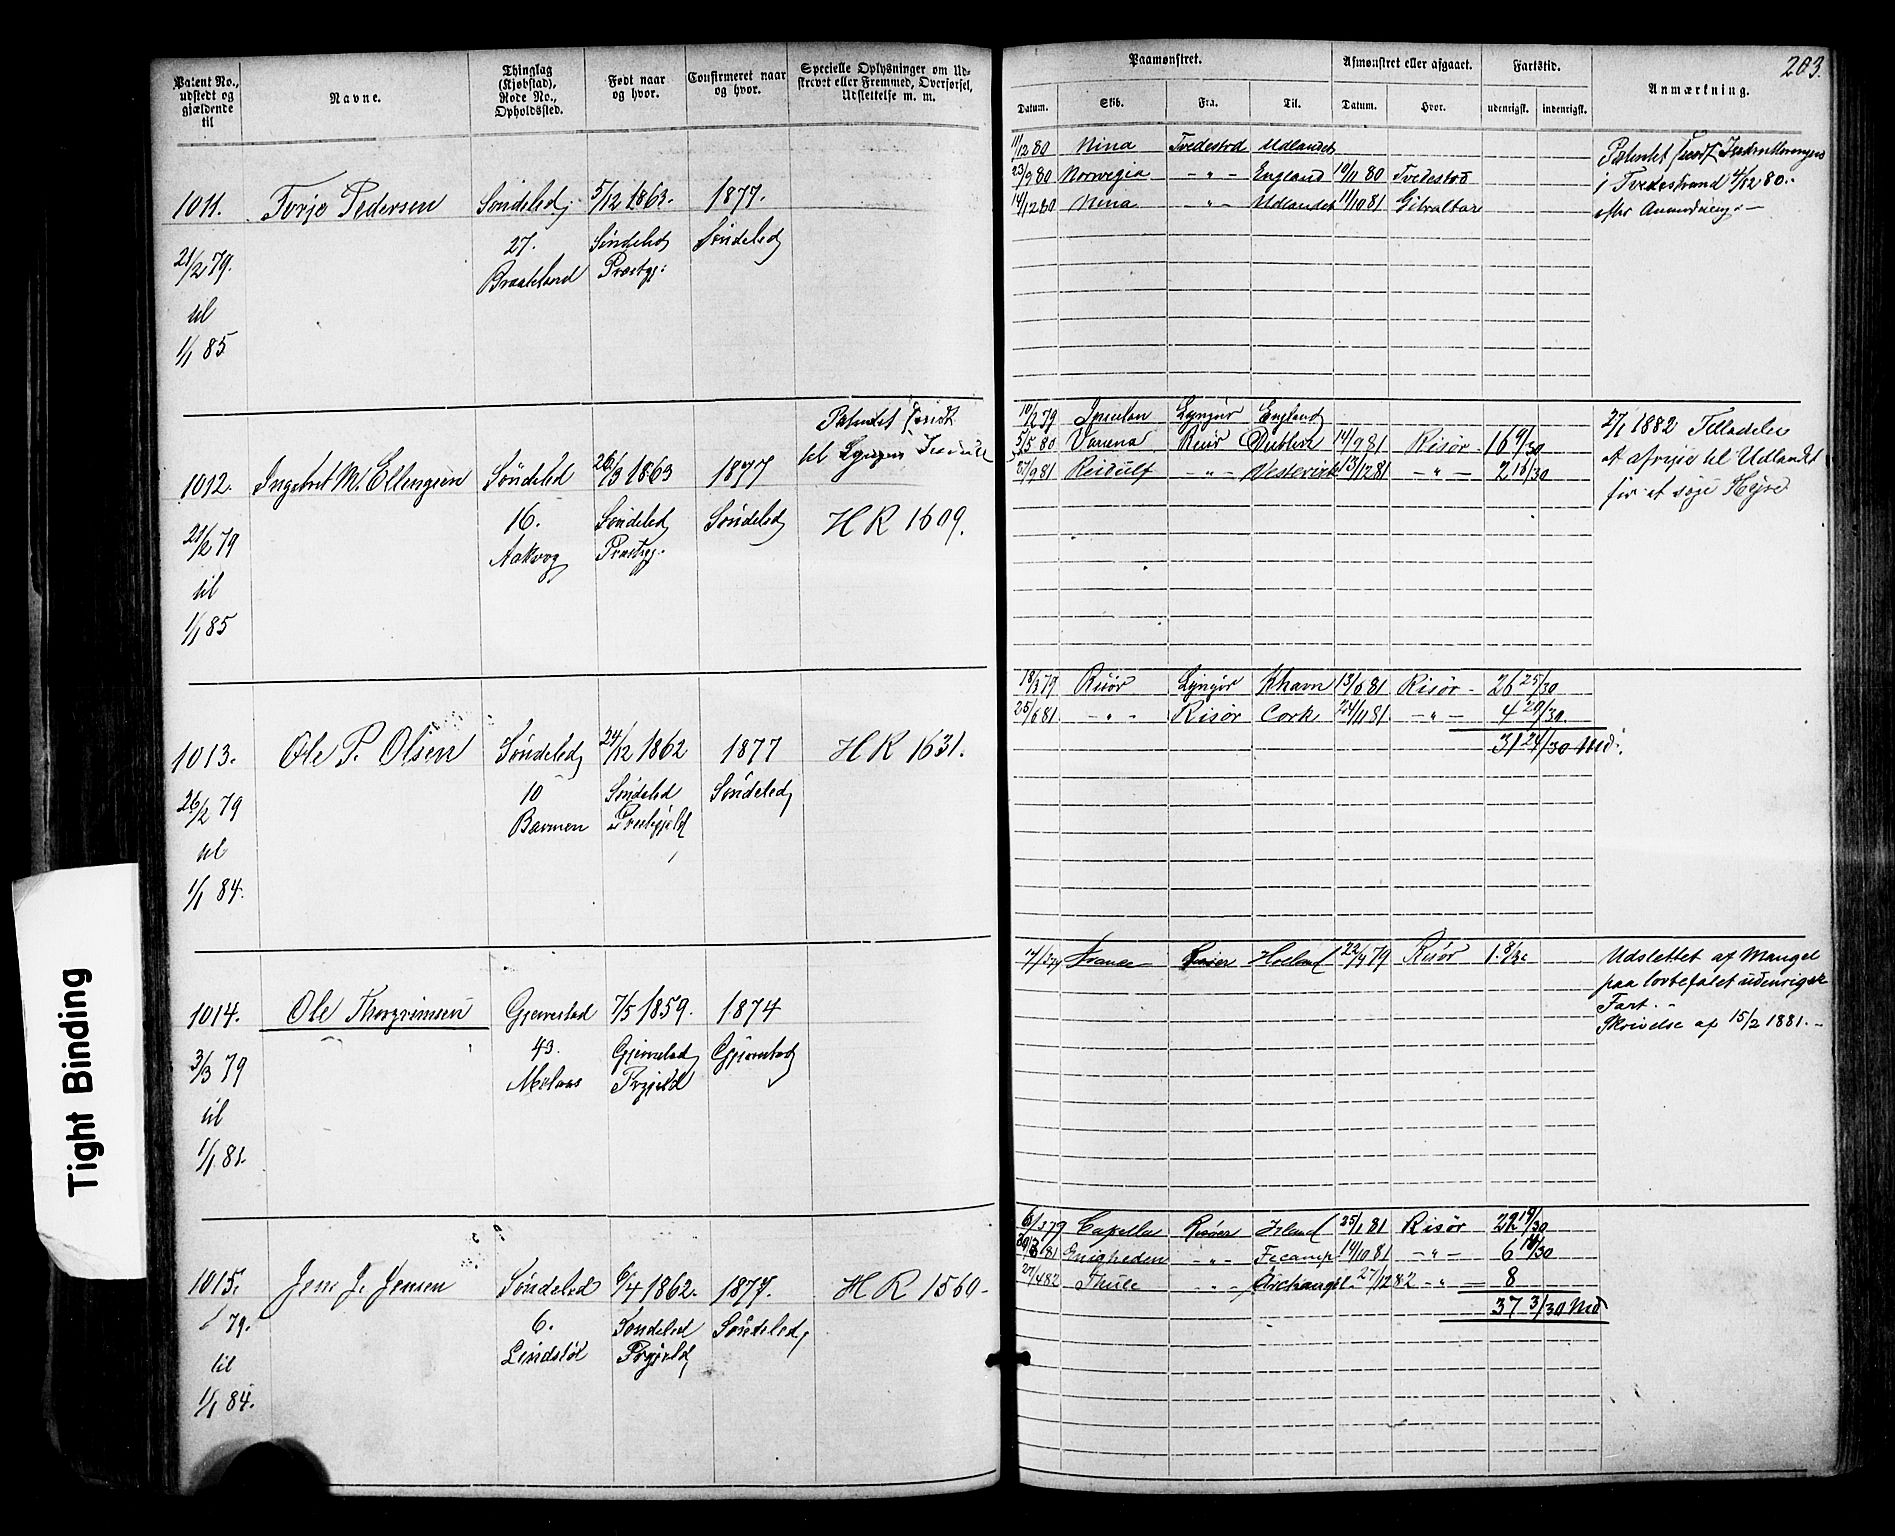 203.
Patent No., udstedt og gjældende til
Navne.
Thinglag (Kjøbstad), Rode No., Opholdssted.
Født naar og hvor.
Confirmeret naar og hvor.
Specielle Oplysninger om Udskrevet eller Fremmed, Overførsel, Udslettelse m. m.
Paamønstret.
Afmønstret eller afgaaet.
Fartstid.
Anmærkning.
Datum. Skib. Fra. Til. Datum. Hvor. udenrigsk. indenrigsk.
1011. Torje Pedersen Søndeled 5/12 1863. 1877.
27. Søndeled Søndeled
21/2 79. Braateland Præstgj:
til
1/1 85
11/12 80 Nina Tvedestrd Udlandet
23/9 80 Norwegia -"- England 10/11 80 Tvedestrd
14/12 80 Nina -"- Udlandet 11/10 81 Gibraltar
Patentet
i Tvedestrand 4/12 80.
efter
1012. Ingebret M. Ellingsen Søndeled 26/3 1863 1877
Patentet
til
16. Søndeled Søndeled HR 1609.
21/2 79 Aakvog Præstgj.
til
1/1 85
10/2 79 Lyngør England
5/5 80 Varena Dublin 14/9 81 Risør 16 9/30
27/9 81 -"- Vestervik 13/12 81 -"- 2 16/30
2/1 1882 Tilladelse
at afreise til Udlandet
for at søge Hyre
1013. Ole P. Olsen Søndeled 24/12 1862 1877 HR 1631.
10 Søndeled Søndeled
26/2 79 Barmen Præstegjeld
til
1/1 84.
18/3 79 Risør Lyngør Khavn 13/6 81 Risør 26 25/30
25/6 81 -"- Risør Cork 24/11 81 -"- 4 29/30
31 24/30 Md.
1014. Ole Thorgrimsen Gjerrestad 7/5 1859. 1874
43. Gjerrestad Gjerrestad
3/3 79 Melaas Prgjeld
til
1/1 81.
Holland 22/4 79 Risør
Udslettet af Mangel
paa lovbefalet udenrigsk
Fart.
Skrivelse af 15/2 1881.
1015. Jens J. Jensen Søndeled 6/4 1862. 1877. HR 1560
6. Søndeled Søndeled
79. Lindstøl Prgjeld
til
1/1 84.
6/3 79 Capella Risøer 25/1 81 Risør 22 19/30
30/3 81 Enigheden -"- Fecamp 14/10 81 -"- 6 14/30
27/4 82 Thule -"- Archangel 27/12 82 -"- 8
37 3/30 Md
Tight Binding